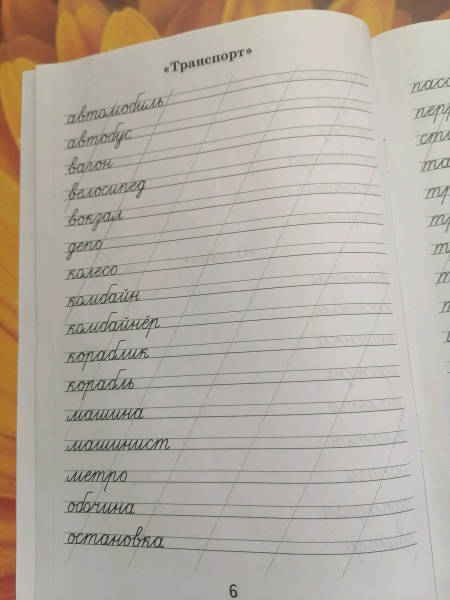 «Транспорт»
автомобиль
автобус
вагон
велосипед
вокзал
депо
колесо
комбайн
комбайнёр
кораблик
корабль
машина
машинист
метро
обочина
остановка
6